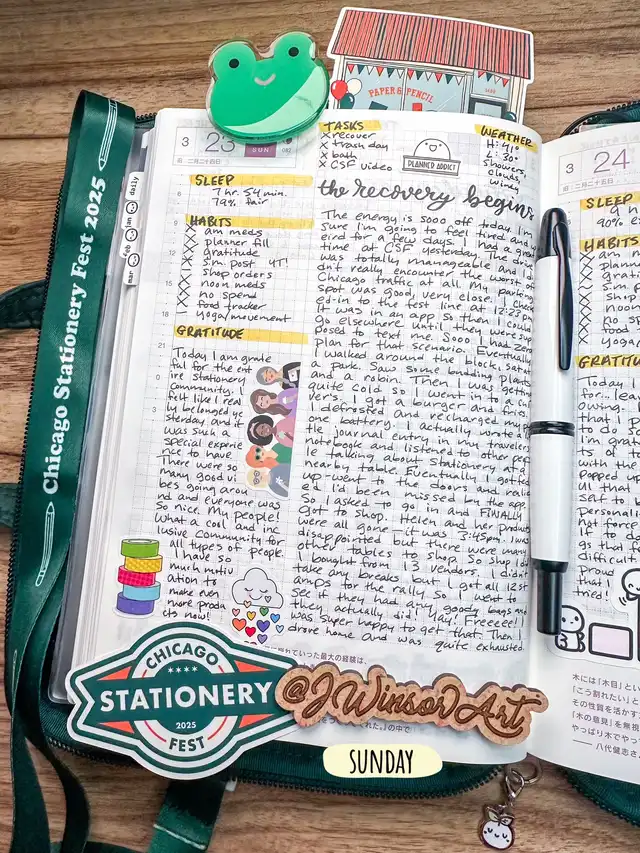 PAPER & PENCIL
Chicago Stationery Fest 2025
daily
jan
feb
mar
3
23
SUN
082
二月二十四日
SLEEP
7 hr. 54 min.
79% fair
HABITS
am meds
planner fill
gratitude
s.m. post YT!
shop orders
noon meds
no spend
food tracker
yoga/movement
GRATITUDE
Today I am grate
ful for the ent
ire Stationery
Community. I
felt like I real
ly belonged ye
sterday and it
was such a
special experie
nce to have.
There were so
many good vi
bes going arou
nd and everyone was
so nice. My people!
What a cool and inc
lusive community for
all types of people.
I have so
much motiv
ation to
make even
more produ
cts now!
TASKS
x recover
x trash day
x bath
x CSF video
PLANNER ADDICT
WEATHER
H: 41°
L: 30°
showers,
clouds,
windy
the recovery begins
The energy is sooo off today. I'm
sure I'm going to feel tired and w
eird for a few days. I had a great
time at CSF yesterday. The drive
was totally manageable and I di
dn't really encounter the worst of
Chicago traffic at all. My parking
spot was good, very close. I check
ed-in to the text line at 12:23pm.
It was in an app so then I could
go elsewhere until they were sup
posed to text me. Sooo I had zero
plan for that scenario. Eventually
I walked around the block, sat in
a park. Saw some budding plants
and a robin. Then I was getting
quite cold so I went in to a Cul
ver's. I got a burger and fries.
I defrosted and recharged my ph
one battery. I actually wrote a lit
tle journal entry in my travelers
notebook and listened to other peop
le talking about stationery at a
nearby table. Eventually I gotted
up-went to the doors and realiz
ed I'd been missed by the app.
So I asked to go in and FINALLY
got to shop. Helen and her products
were all gone-it was 3:45pm. I was
disappointed but there were many
other tables to shop. So shop I did.
I bought from 13 vendors. I didn't
take any breaks but I got all 12 st
amps for the rally so I went to
see if they had any goody bags and
they actually did! Yay! Freeeee! I
was super happy to get that. Then I
drove home and was quite exhausted.
CHICAGO
STATIONERY
2025
FEST
@JWinsorArt
SUNDAY
3
24
二月二十五日
SLEEP
90%
HABITS
am meds
planner
gratitude
shop
noon
no sp
food
yoga
GRATITU
Today I
木には「木目」という
「こう割れたい」と
その性質を活かす
「木の意見」を無視
やっぱり木でやっ
── 八代健志さ